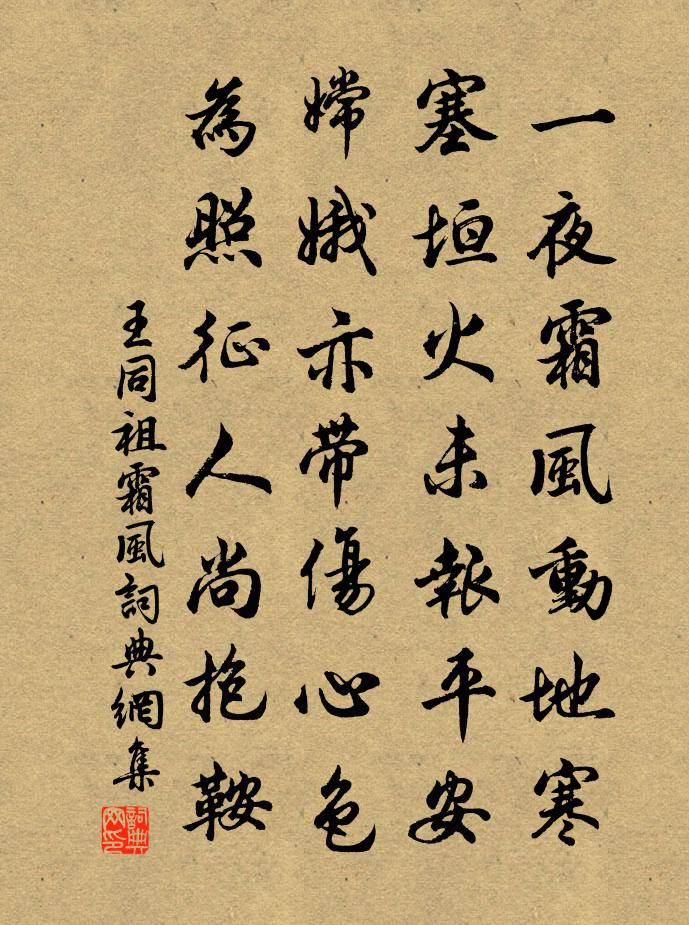 一夜霜風動地寒
塞垣火未報平安
嫦娥亦帶傷心色
為照征人尚抱鞍
王同祖霜風詞典網集
詞典網印